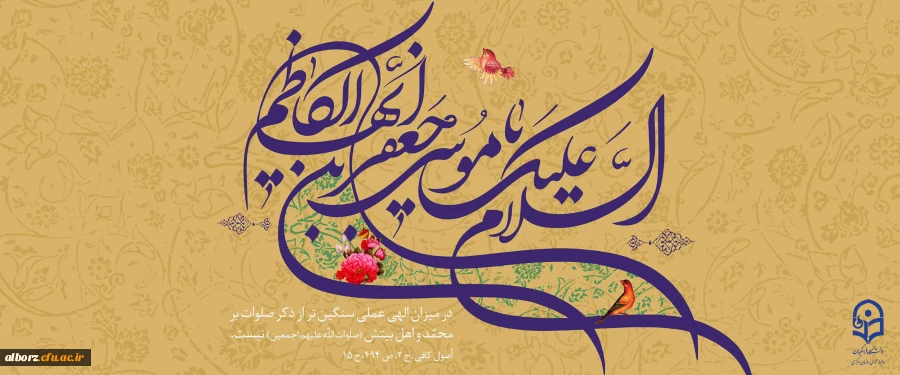 السلام علیک یا موسی بن جعفر ایها الکاظم
در میزان الهی عملی سنگین تر از ذکر صلوات بر
محمّد و اهل بیتش (صلوات الله علیهم اجمعین) نیست.
اصول کافی: ج ۲، ص ۴۹۴، ح ۱۵
دانشگاه فرهنگیان
alborz.cfu.ac.ir